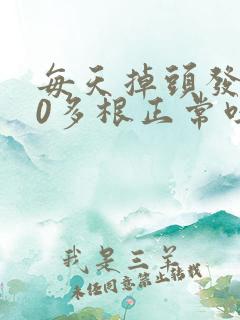 每天掉頭發
0多根正常
我是三羊
未经同意禁止转载